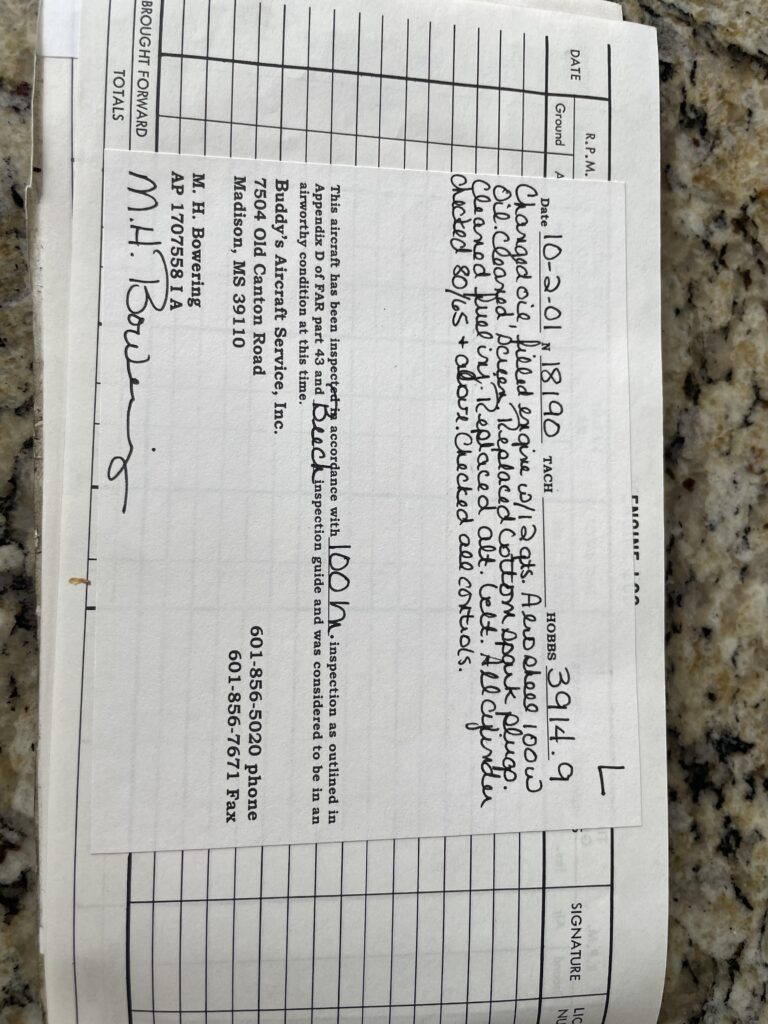 ENGINE LOG
DATE
R.P.M.
Ground
SIGNATURE
BROUGHT FORWARD
TOTALS
L
Date 10-2-01 N 18190 TACH HOBBS 3914.9
Changed oil, filled engine w/12 qts. Aeroshell 100w
oil. Cleaned screen, Replaced bottom spark plugs.
Cleaned fuel inj. Replaced alt. belt. All cylinder
checked 80/65 + above. Checked all controls.
This aircraft has been inspected in accordance with 100 h. inspection as outlined in
Appendix D of FAR part 43 and Beech inspection guide and was considered to be in an
airworthy condition at this time.
Buddy's Aircraft Service, Inc.
7504 Old Canton Road 601-856-5020 phone
Madison, MS 39110 601-856-7671 Fax
M. H. Bowering
AP 1707558 I A
M.H. Bowering